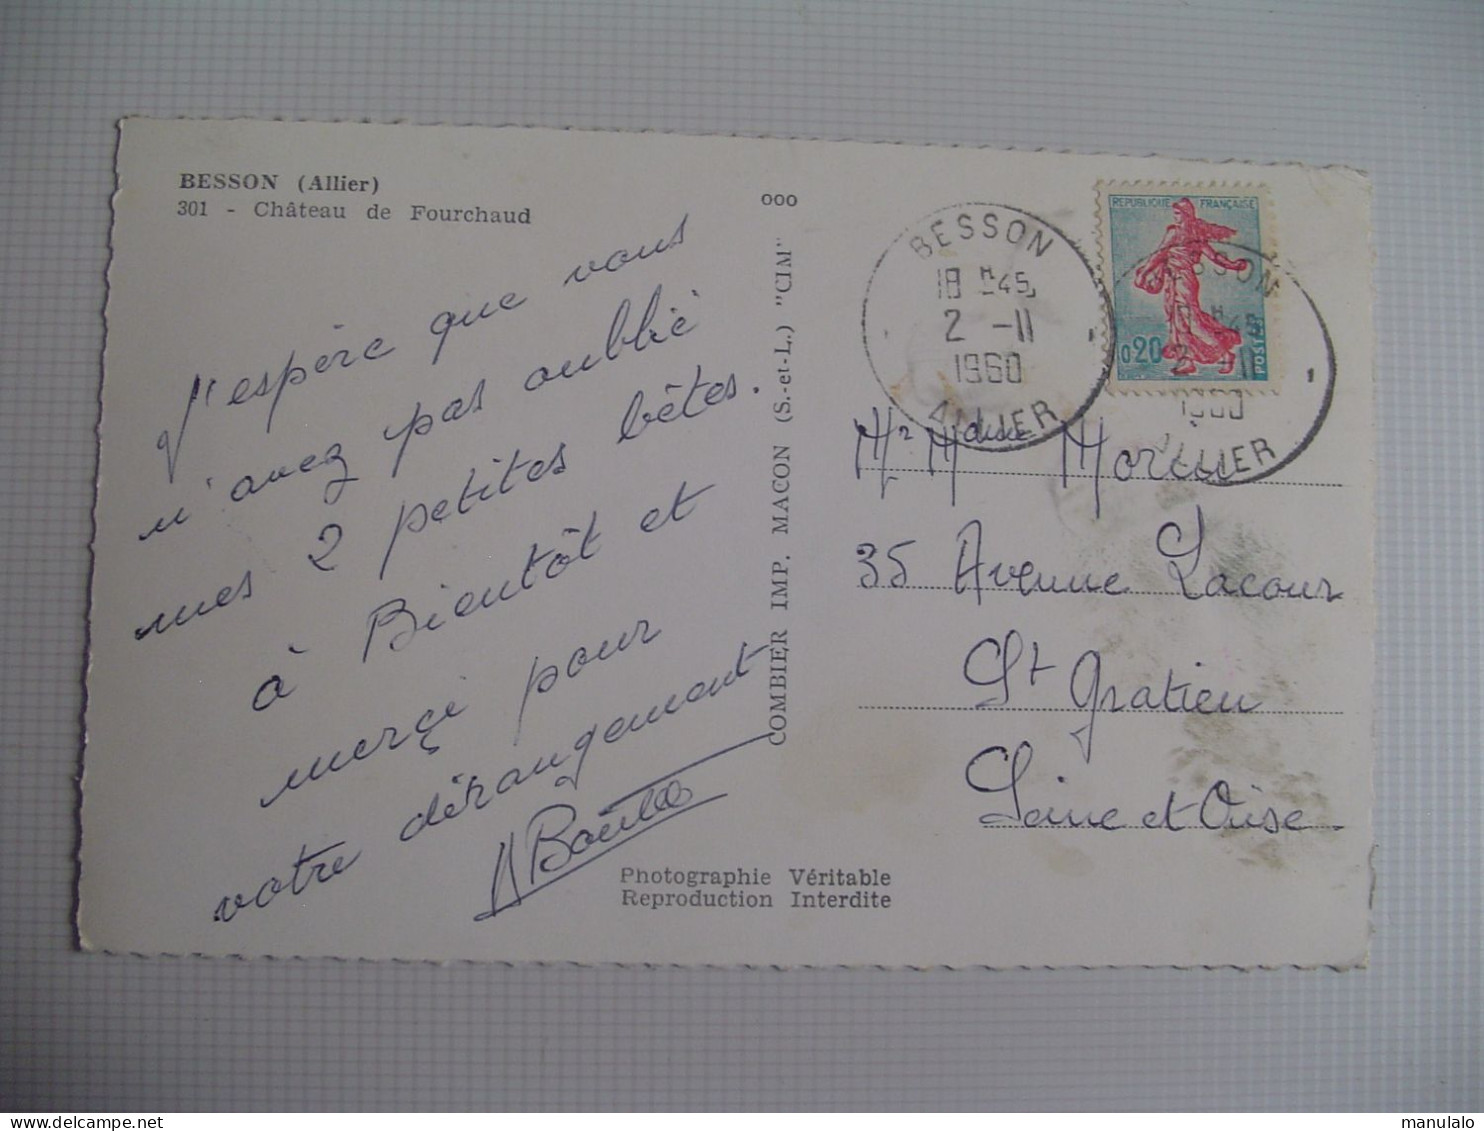 BESSON (Allier)
301 - Château de Fourchaud
J'espère que vous
n'avez pas oublié
mes 2 petites bêtes.
à Bientôt et
merçi pour
votre dérangement
COMBIER IMP. MACON (S.-et-L.) "CIM"
Photographie Véritable
Reproduction Interdite
ooo
BESSON
18 H 45
2 -11
1960
ALLIER
REPUBLIQUE FRANÇAISE
0,20
POSTES
BESSON
H 45
2 -11
1960
ALLIER
35 Avenue Lacour
St Gratien
Seine et Oise
manulalo